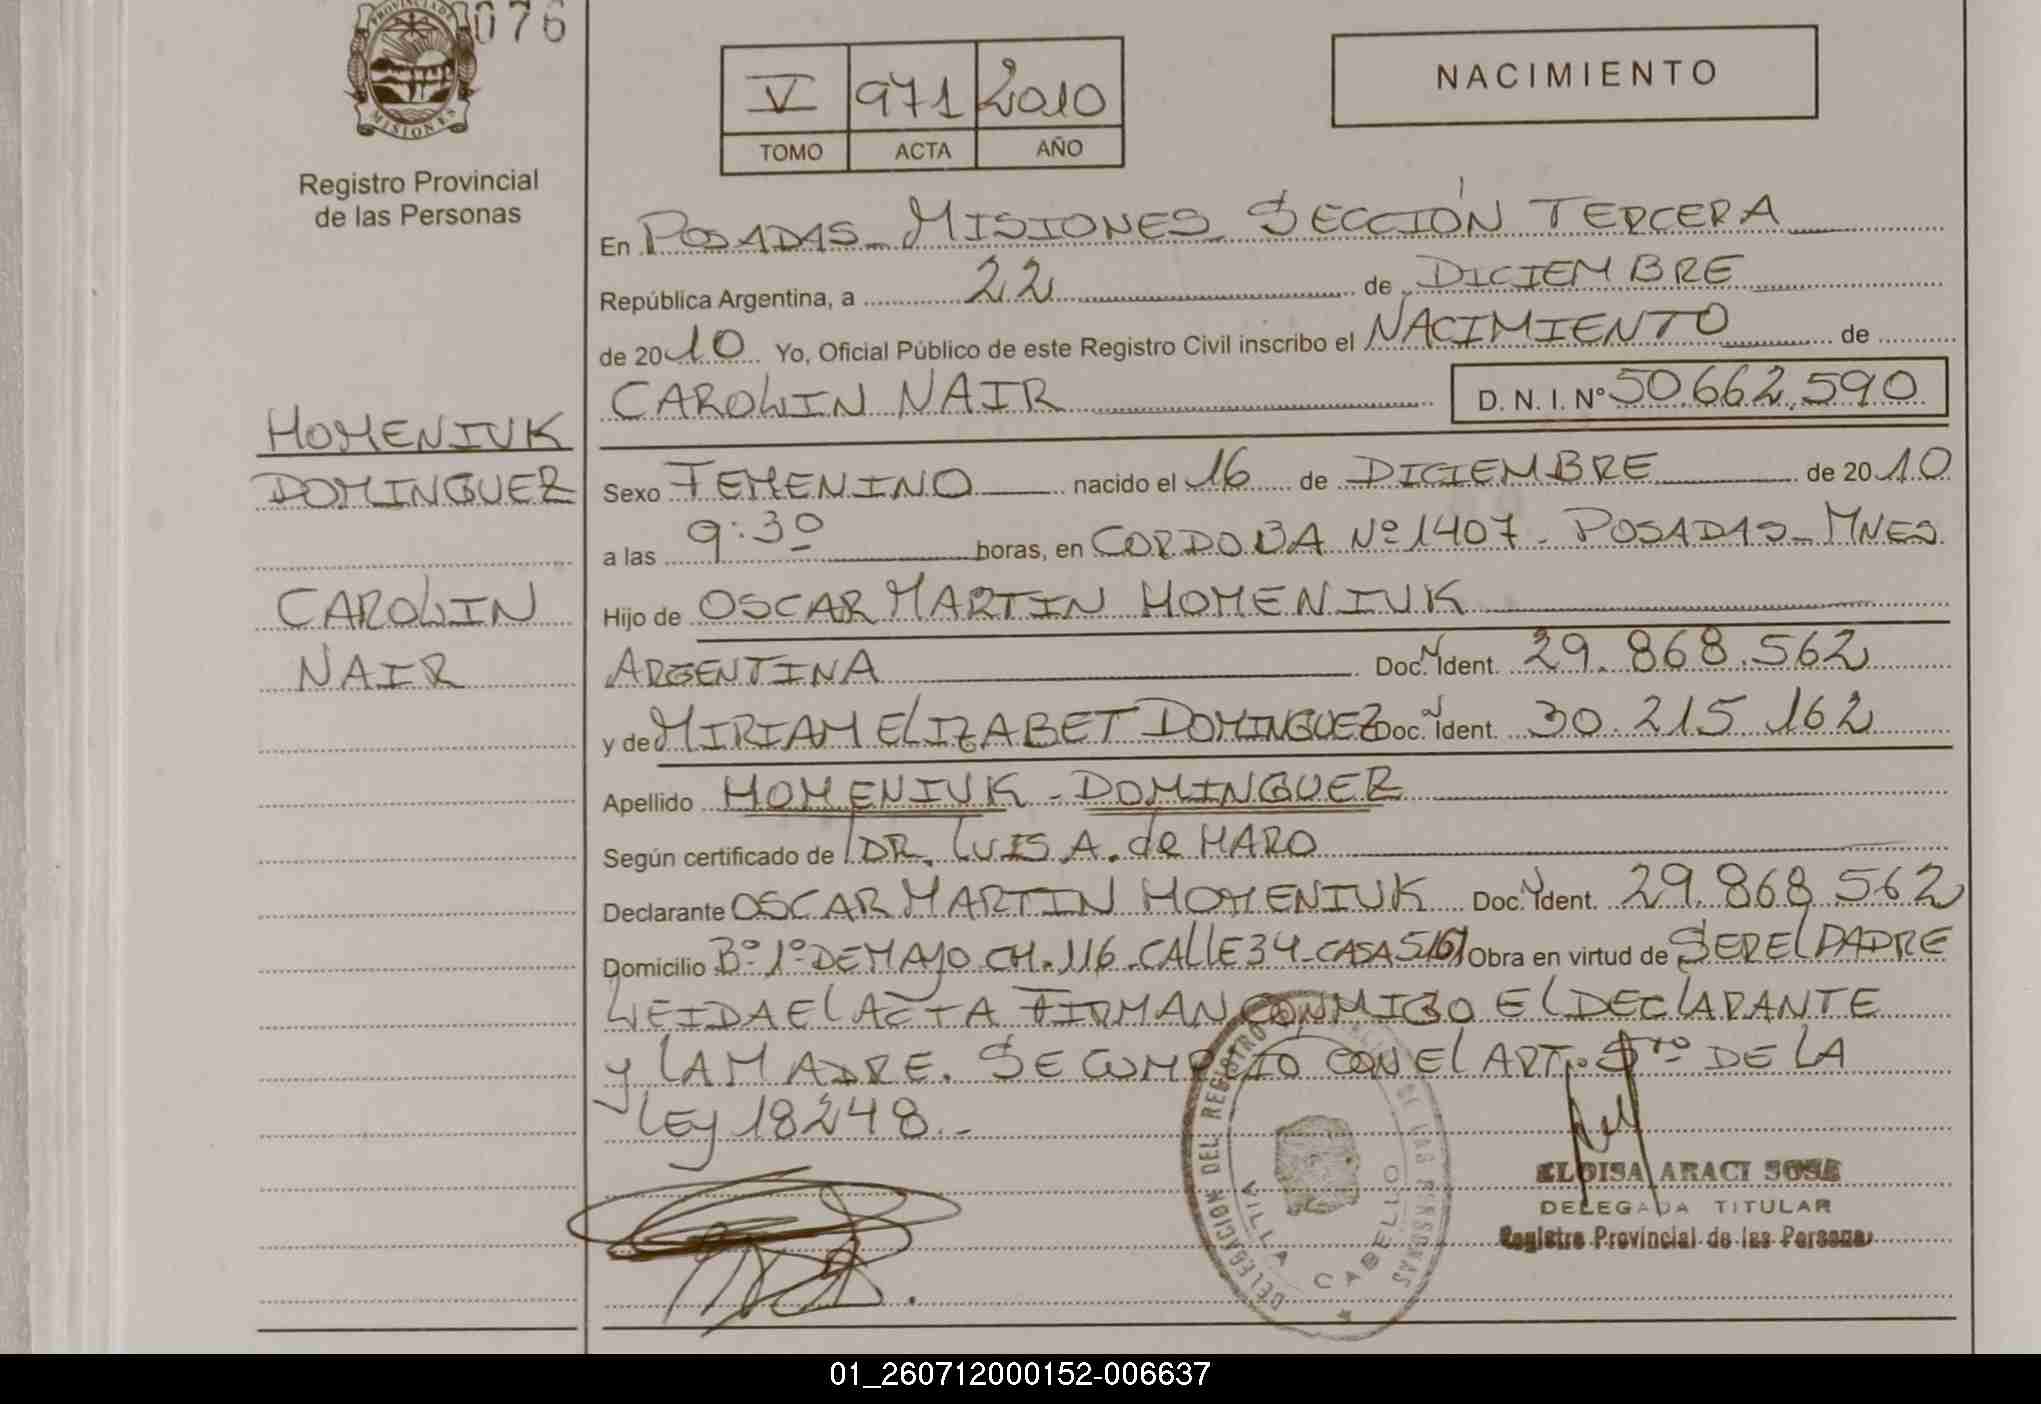 PROVINCIA DE
MISIONES
076
Registro Provincial
de las Personas
V 971 2010
TOMO ACTA AÑO
NACIMIENTO
En POSADAS - MISIONES - SECCIÓN TERCERA
República Argentina, a 22 de DICIEMBRE
de 2010 Yo, Oficial Público de este Registro Civil inscribo el NACIMIENTO de
CAROLIN NAIR D. N. I. Nº 50.662.590
HOMENIUK
DOMINGUEZ
CAROLIN
NAIR
Sexo FEMENINO nacido el 16 de DICIEMBRE de 2010
a las 9:30 horas, en CORDOBA Nº 1407 - POSADAS - MNES
Hijo de OSCAR MARTIN HOMENIUK
ARGENTINA Doc. N Ident. 29.868.562
y de MIRIAM ELIZABET DOMINGUEZ Doc. N Ident. 30.215.162
Apellido HOMENIUK - DOMINGUEZ
Según certificado de DR. LUIS A. de HARO
Declarante OSCAR MARTIN HOMENIUK Doc. N Ident. 29.868.562
Domicilio Bº 1º DE MAYO CH. 116 - CALLE 34 - CASA Obra en virtud de SER EL PADRE
LEIDA EL ACTA FIRMAN CONMIGO EL DECLARANTE
y LA MADRE. SE CUMPLIO CON EL ART. 5to DE LA
LEY 18248.-
DELEGACION DEL REGISTRO DE LAS PERSONAS
VILLA CABELLO
ELOISA ARACI SOSA
DELEGADA TITULAR
Registro Provincial de las Personas
01_260712000152-006637